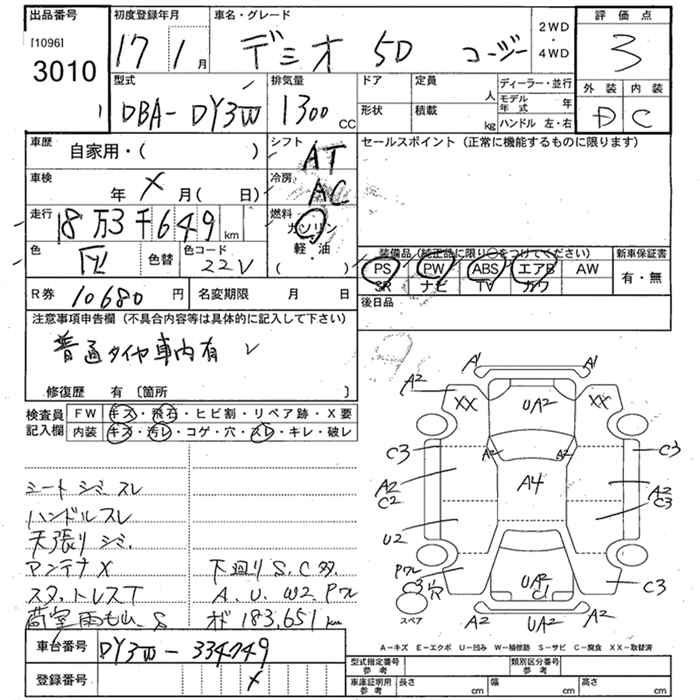 出品番号
[1096]
3010
初度登録年月
17 1月
車名・グレード
デミオ 5D コージー
2WD
4WD
評価点
3
型式
DBA-DY3W
排気量
1300 CC
ドア
形状
定員
人
積載
kg
ディーラー・並行
モデル年式 年
ハンドル 左・右
外装 内装
D C
車歴 自家用・( )
シフト AT
車検 年 X 月( 日)
冷房 AC
走行 18万3千649km
燃料 ガソリン
軽・油
( )
色
色替
色コード
22V
セールスポイント(正常に機能するものに限ります)
装備品(純正品に限り○をつけてください)
PS PW ABS エアB AW
SR ナビ TV カワ
新車保証書
有・無
後日品
R券 10680円
名変期限 月 日
注意事項申告欄(不具合内容等は具体的に記入して下さい)
普通タイヤ車内有
修復歴 有〔箇所 〕
検査員
記入欄
FW キズ・飛石・ヒビ割・リペア跡・X要
内装 キズ・汚レ・コゲ・穴・スレ・キレ・破レ
シートシミスレ
ハンドルスレ
天張りシミ
アンテナX
スタ.トレスT
荷室雨もれ.S
下廻りS.C多
A.U.W2 Pワレ
オド183,651km
A1 A1
A2 A2
XX XX
UA2
A2 A2
C3 C3
A2
C2
A4
A2
C3
U2
Pワレ
C3穴
UA2
C1
C3
A2 UA2 A2
スペア
A－キズ E－エクボ U－凹み W－補修跡 S－サビ C－腐食 XX－取替済
車台番号 DY3W-334749
登録番号 X
型式指定番号
参考
類別区分番号
参考
車庫証明用
参考
長さ cm
幅 cm
高さ cm